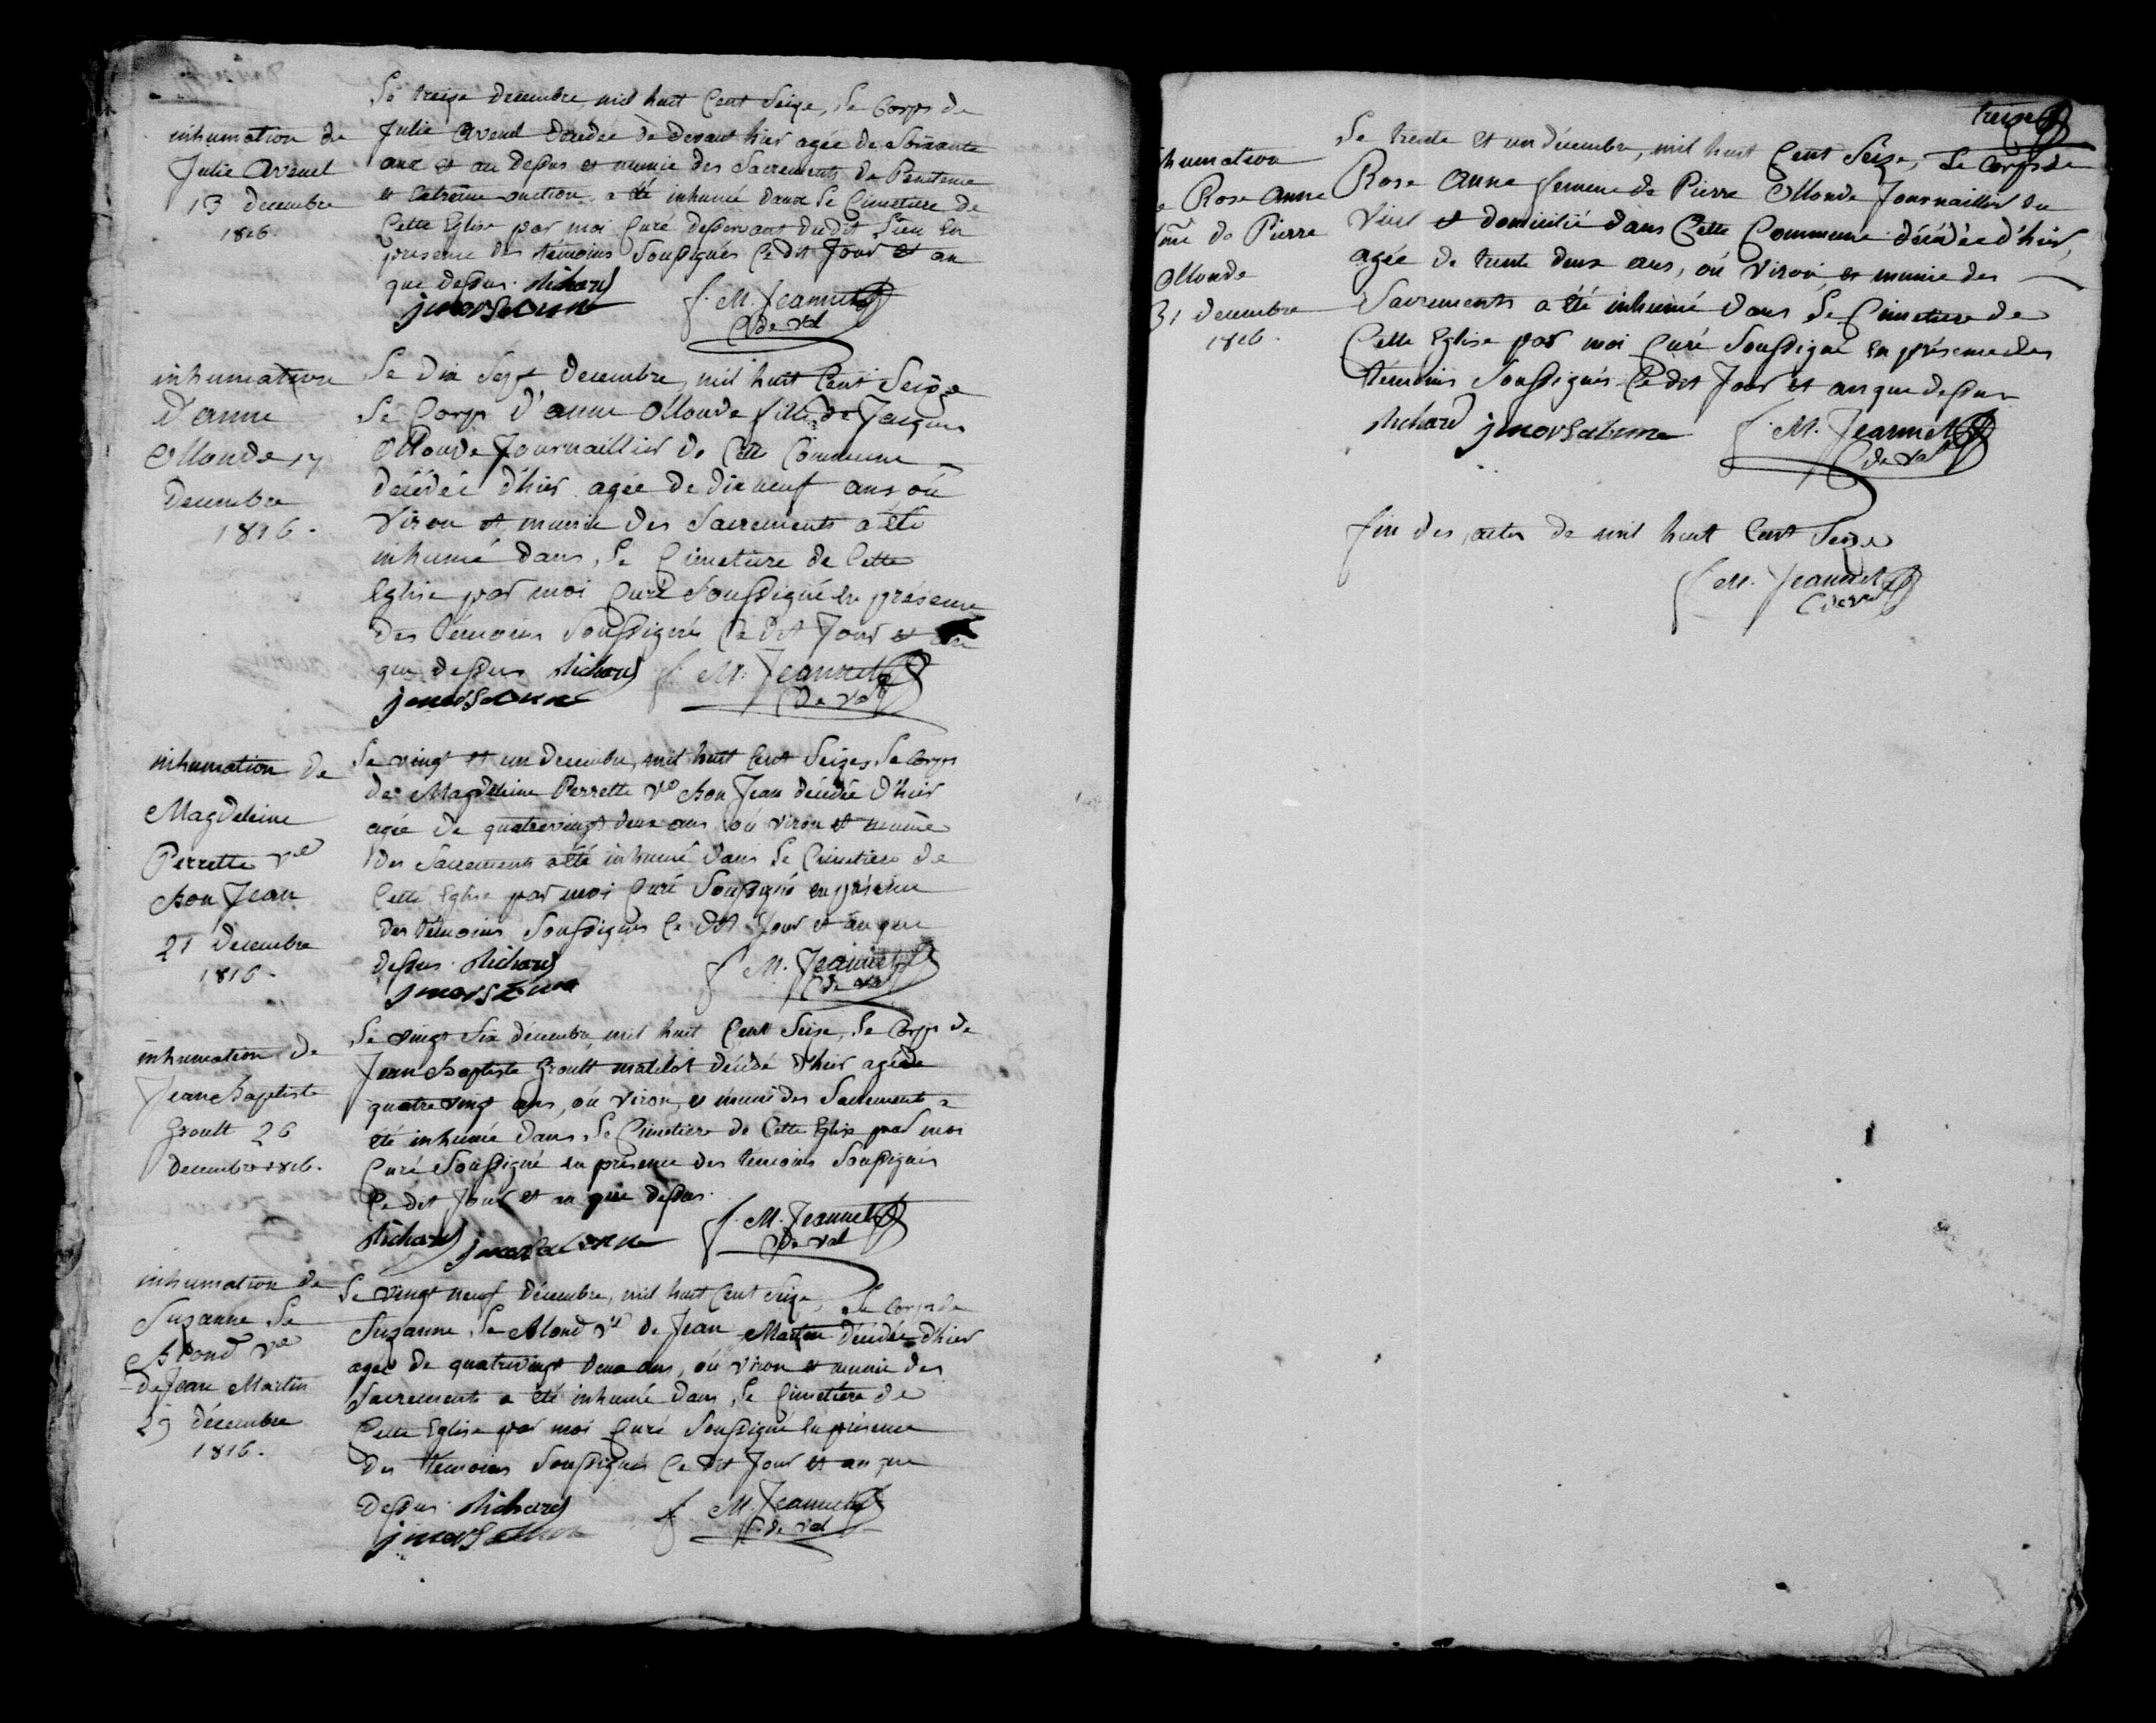 inhumation de
Julie avenel
13 decembre
1816.
Le treize decembre, mil huit Cent Seize, Le Corps de
Julie avenel décédée de devant hier agée de Soixante
ans et au dessus et munie des Sacrements de Penitence
et extrème onction a été inhumé dans Le Cimetiere de
Cette Eglise par moi Curé desservant dudit Lieu En
presence des témoins Soussignés Ce dit Jour et an
que dessus. Richard
f. M. Jeannet
C de Val
inhumation
d'anne
Monde 17
decembre
1816.
Le dix Sept decembre, mil huit Cent Seize
Le Corps d'anne Monde fille de Jacques
Monde Journaillier de Cette Commune
décédée d'hier agée de dix neuf ans, où
viron et munie des Sacrements a été
inhumé dans Le Cimetiere de Cette
Eglise par moi Curé Soussigné En présence
des témoins Soussignés Ce dit Jour et an
que dessus Richard f. M. Jeannet
C de Val
inhumation de
Magdeleine
Perrette ve
Bon Jean
21 decembre
1816.
Le vingt et un decembre, mil huit Cent Seize, Le Corps
de Magdeleine Perrette ve Bon Jean décédée d'hier
agée de quatrevingt deux ans, où viron et munie
des Sacrements a été inhumé dans Le Cimetiere de
Cette Eglise par moi Curé Soussigné en présence
des témoins Soussignés Ce dit Jour et an que
dessus. Richard
f. M. Jeannet
C de Val
inhumation de
Jean Baptiste
Groult 26
decembre 1816.
Le vingt Six décembre, mil huit Cent Seize, Le Corps de
Jean Baptiste Groult matelot décédé d'hier agé de
quatre vingt ans, où viron, et muni des Sacrements a
été inhumé dans Le Cimetiere de Cette Eglise par moi
Curé Soussigné en présence des témoins Soussignés
Ce dit Jour et an que dessus.
Richard
f. M. Jeannet
C de Val
inhumation de
Suzanne Le
Blond ve
de Jean Martin
29 décembre
1816.
Le vingt neuf décembre, mil huit Cent Seize, Le Corps de
Suzanne Le Blond ve de Jean Martin décédée d'hier
agée de quatrevingt deux ans, où viron et munie des
Sacrements a été inhumé dans Le Cimetiere de
Cette Eglise par moi Curé Soussigné En présence
des témoins Soussignés Ce dit Jour et an que
dessus. Richard
f. M. Jeannet
C de Val
treize
humation
e Rose Anne
fme de Pierre
Monde
31 decembre
1816.
Le trente et un décembre, mil huit Cent Seize, Le Corps de
Rose Anne femme de Pierre Monde Journaillier du
Vicel et domicilié dans Cette Commune décédée d'hier,
agée de trente deux ans, où viron, et munie des
Sacrements a été inhumé dans Le Cimetiere de
Cette Eglise par moi Curé Soussigné En présence des
témoins Soussignés Ce dit Jour et an que dessus
Richard
f. M. Jeannet
C de Val
fin des actes de mil huit Cent Seize
f. M. Jeannet
C de Val